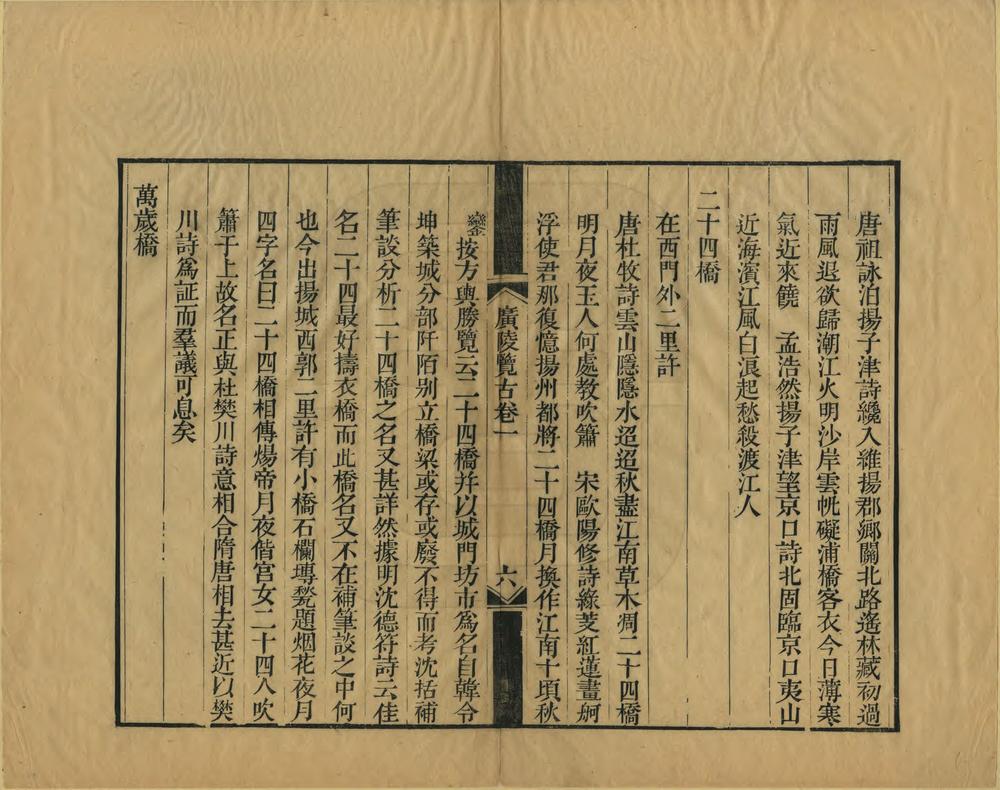 唐祖詠泊揚子津詩纔入維揚郡鄉關北路遙林藏初過
雨風退欲歸潮江火明沙岸雲帆礙浦橋客衣今日薄寒
氣近來饒　孟浩然揚子津望京口詩北固臨京口夷山
近海濱江風白浪起愁殺渡江人
二十四橋
在西門外二里許
唐杜牧詩雲山隱隱水迢迢秋盡江南草木凋二十四橋
明月夜玉人何處教吹簫　宋歐陽修詩綠芰紅蓮畫舸
浮使君那復憶揚州都將二十四橋月換作江南十頃秋
廣陵覽古卷一
六
鑾按方輿勝覽云二十四橋并以城門坊市爲名自韓令
坤築城分部阡陌別立橋梁或存或廢不得而考沈括補
筆談分析二十四橋之名又甚詳然據明沈德符詩云佳
名二十四最好擣衣橋而此橋名又不在補筆談之中何
也今出揚城西郭二里許有小橋石欄塼甃題烟花夜月
四字名曰二十四橋相傳煬帝月夜偕宮女二十四人吹
簫于上故名正與杜樊川詩意相合隋唐相去甚近以樊
川詩爲証而羣議可息矣
萬歲橋